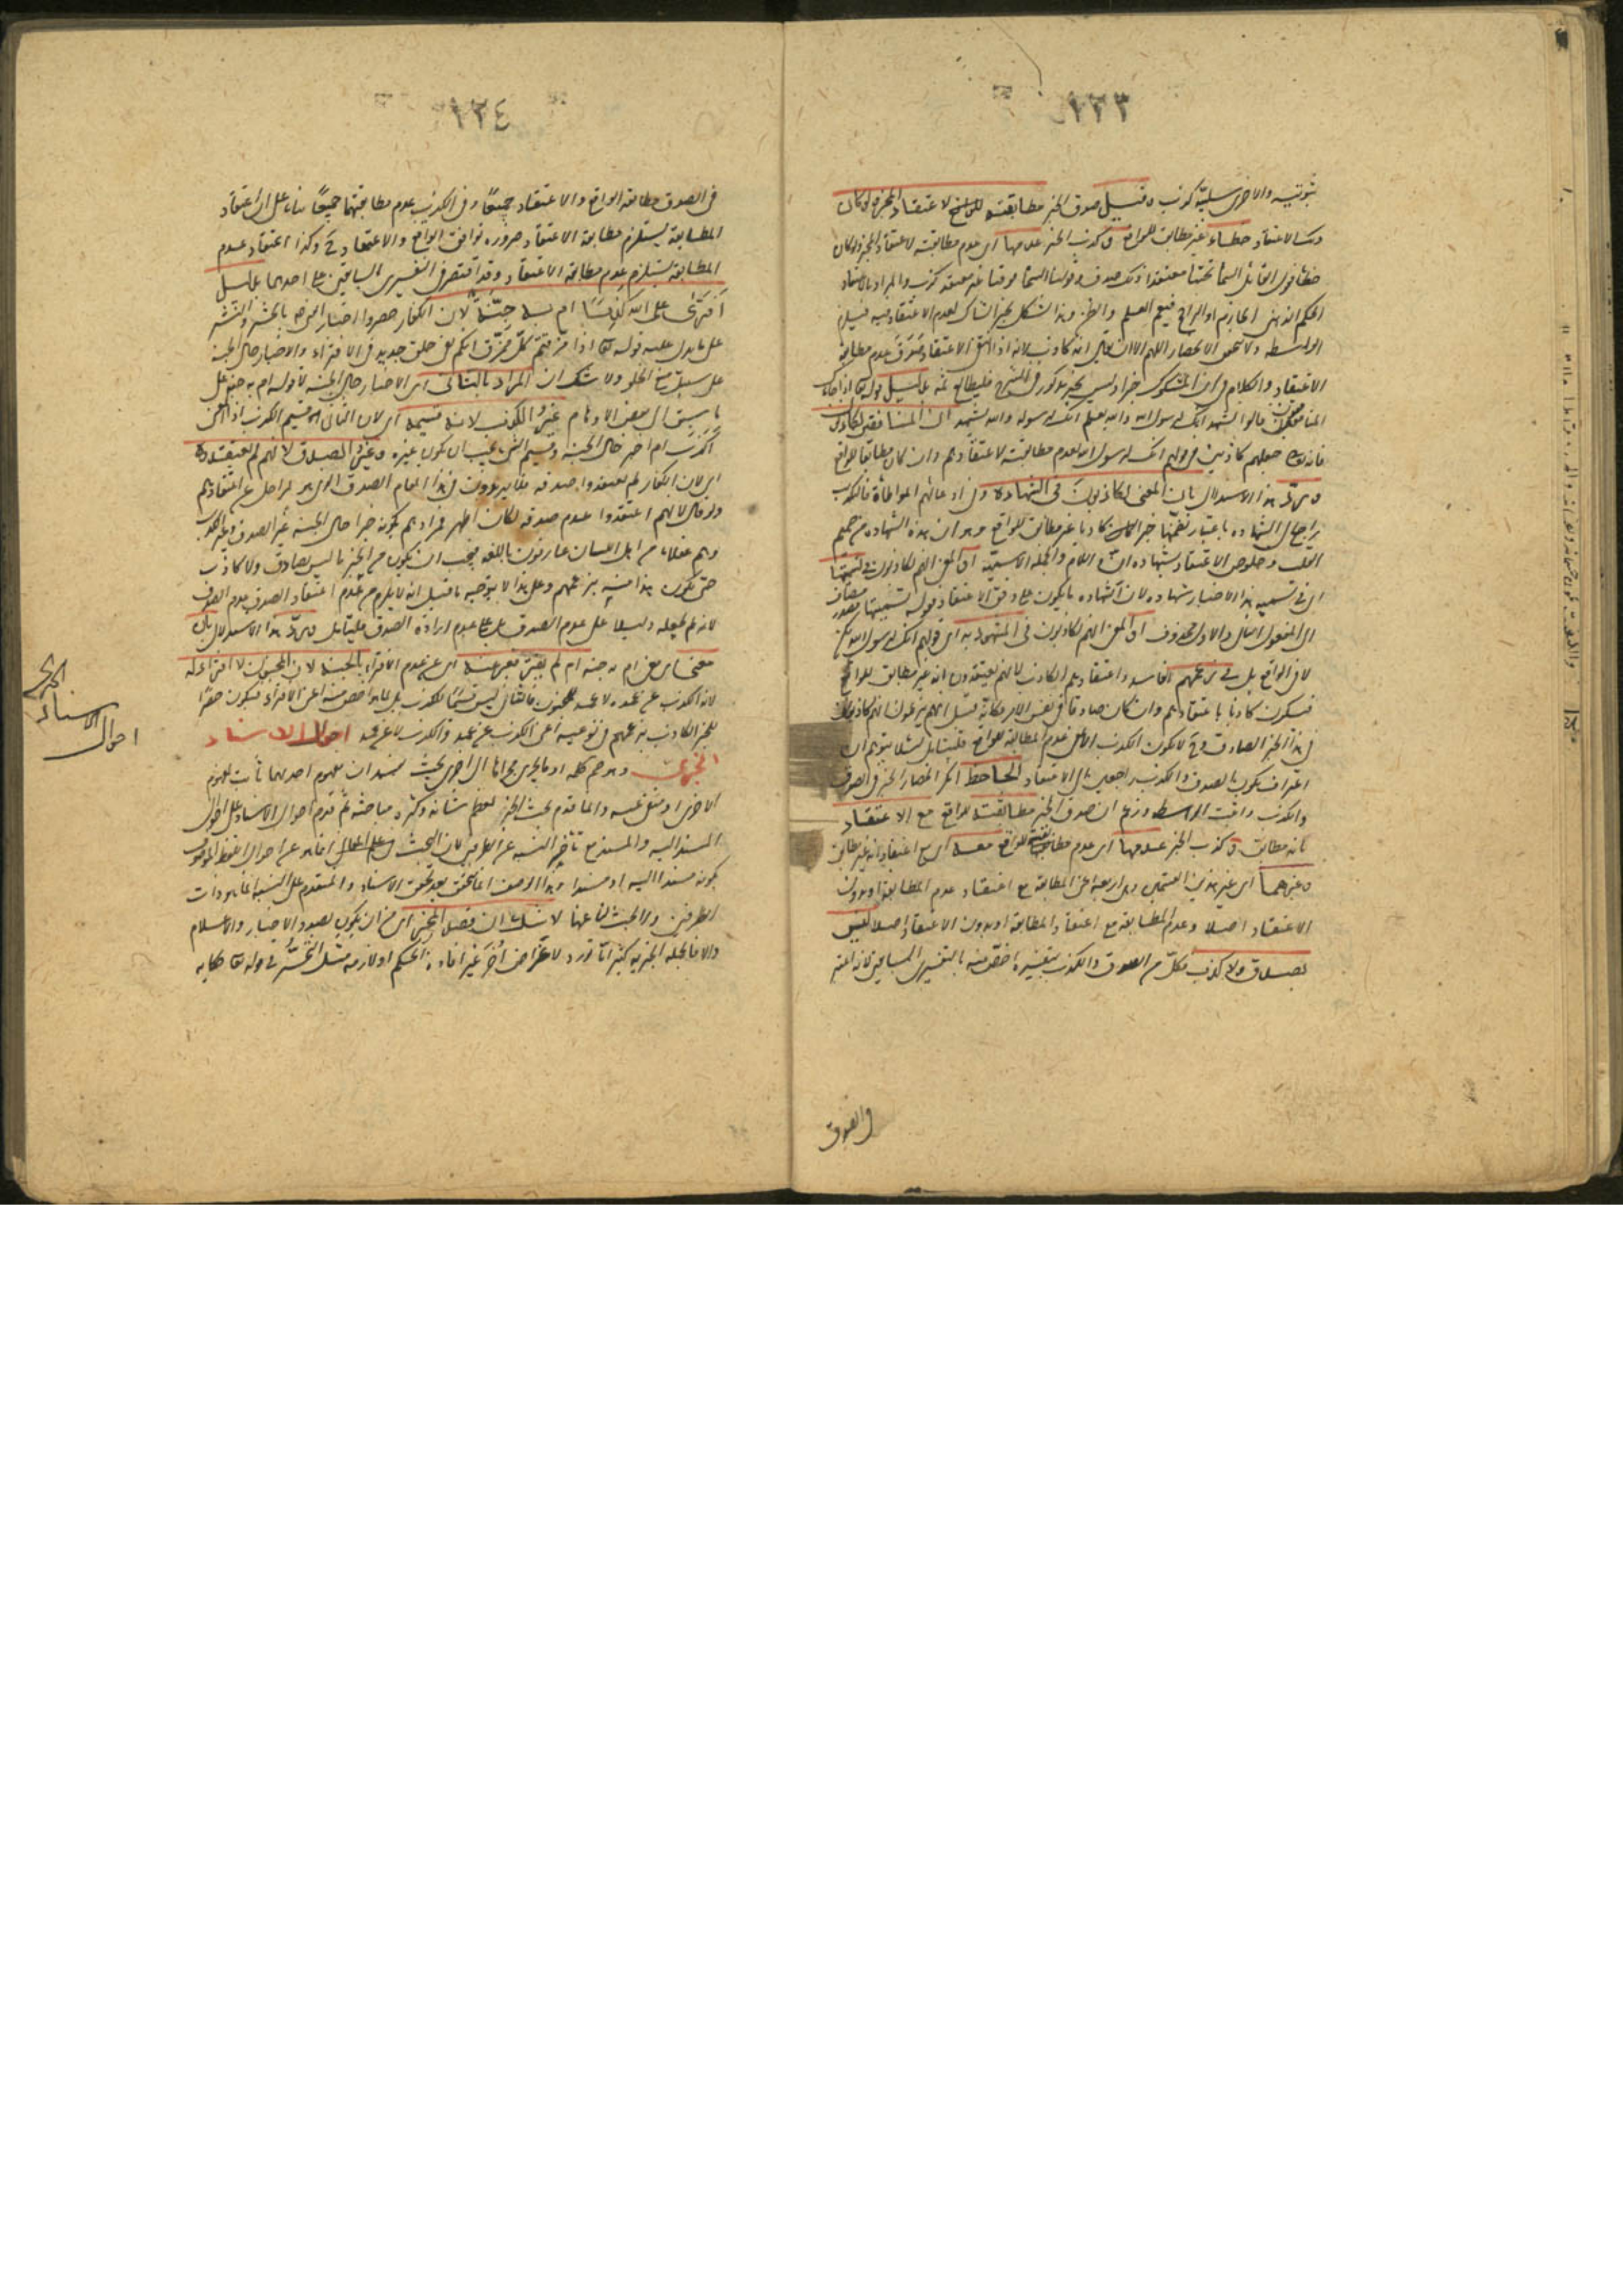 ١٢٣
ثبوتية والاخرى سلبية كذب وقيل صدق الخبر مطابقته للواقع لاعتقاد المخبر ولو كان
ذلك الاعتقاد خطاء غير مطابق للواقع وكذب الخبر عدمها اى عدم مطابقته لاعتقاد المخبر ولو كان
خطأ فقول القائل السماء تحتنا معتقدا ذلك صدق وقولنا السماء فوقنا غير معتقد كذب والمراد بالاعتقاد
الحكم الذهنى الجازم او الراجح فيعم العلم والظن وهذا يشكل بخبر الشاك لعدم الاعتقاد فيه فيلزم
الواسطة ولا يتحقق الانحصار اللهم الا ان يقال انه كاذب لانه اذا انتفى الاعتقاد صدق عدم مطابقة
الاعتقاد والكلام فى ان المشكوك خبر او ليس بخبر مذكور فى الشرح فليطالع ثمه بدليل قوله تعالى اذا جاءك
المنافقون قالوا نشهد انك لرسول الله والله يعلم انك لرسوله والله يشهد ان المنافقين لكاذبون
فانه تعالى جعلهم كاذبين فى قولهم انك لرسول الله لعدم مطابقته لاعتقادهم وان كان مطابقا للواقع
ورد هذا الاستدلال بان المعنى لكاذبون فى الشهادة وفى ادعائهم المواطأة فالتكذيب
راجع الى الشهادة باعتبار تضمنها خبرا كاذبا غير مطابق للواقع وهو ان هذه الشهادة من صميم
القلب وخلوص الاعتقاد بشهادة ان واللام والجملة الاسمية او المعنى انهم لكاذبون فى تسميتها
اى فى تسمية هذا الاخبار شهادة لان الشهادة ما يكون على وفق الاعتقاد فقوله تسميتها مصدر مضاف
الى المفعول الثانى والاول محذوف او المعنى انهم لكاذبون فى المشهود به اى قولهم انك لرسول الله لكن
لا فى الواقع بل فى زعمهم الفاسد واعتقادهم الكاذب لانهم يعتقدون انه غير مطابق للواقع
فيكون كاذبا باعتقادهم وان كان صادقا فى نفس الامر فكانه قيل انهم يزعمون انهم كاذبون
فى هذا الخبر الصادق وح لا يكون الكذب الا بمعنى عدم المطابقة للواقع فليتأمل لئلا يتوهم ان هذا
اعتراف بكون الصدق والكذب راجعين الى الاعتقاد الجاحظ انكر انحصار الخبر فى الصدق
والكذب واثبت الواسطة وزعم ان صدق الخبر مطابقته للواقع مع الاعتقاد
بانه مطابق وكذب الخبر عدمها اى عدم مطابقته للواقع معه اى مع اعتقاد انه غير مطابق
وغيرهما اى غير هذين القسمين وهو اربعة اعنى المطابقة مع اعتقاد عدم المطابقة او بدون
الاعتقاد اصلا وعدم المطابقة مع اعتقاد المطابقة او بدون الاعتقاد اصلا ليس
بصدق ولا كذب فكل من الصدق والكذب بتفسيره اخص منه بالتفسيرين السابقين لانه اعتبر
١٢٤
فى الصدق مطابقة الواقع والاعتقاد جميعا وفى الكذب عدم مطابقتهما جميعا بناء على ان اعتقاد
المطابقة يستلزم مطابقة الاعتقاد ضرورة توافق الواقع والاعتقاد ح وكذا اعتقاد عدم
المطابقة يستلزم عدم مطابقة الاعتقاد وقد اقتصر فى التفسيرين السابقين على احدهما بدليل
افترى على الله كذبا ام به جنة لان الكفار حصروا اخبار النبى بالحشر والنشر
على ما يدل عليه قوله تعالى اذا مزقتم كل ممزق انكم لفى خلق جديد فى الافتراء والاخبار حال الجنة
على سبيل منع الخلو ولا شك ان المراد بالثانى اى الاخبار حال الجنة لا قوله ام به جنة على
ما سبق الى بعض الاوهام غير الكذب لانه قسيمه اى لان الثانى قسيم الكذب اذ المعنى
اكذب ام اخبر حال الجنة وقسيم الشئ يجب ان يكون غيره وغير الصدق لانهم لم يعتقدوه
اى لان الكفار لم يعتقدوا صدقه فلا يريدون فى هذا المقام الصدق الذى هو بمراحل عن اعتقادهم
ولو قال لانهم اعتقدوا عدم صدقه لكان اظهر فمرادهم بكونه خبرا حال الجنة غير الصدق وغير الكذب
وهم عقلاء من اهل اللسان عارفون باللغة فيجب ان يكون من الخبر ما ليس بصادق ولا كاذب
حتى يكون هذا منه بزعمهم وعلى هذا لا يتوجه ما قيل انه لا يلزم من عدم اعتقاد الصدق عدم الصدق
لانه لم يجعله دليلا على عدم الصدق بل على عدم ارادة الصدق فليتأمل ورد هذا الاستدلال بان
المعنى اى معنى ام به جنة ام لم يفتر فعبر عنه اى عن عدم الافتراء بالجنة لان المجنون لا افتراء له
لانه الكذب عن عمد ولا عمد للمجنون فالثانى ليس قسيما للكذب بل لما هو اخص منه اعنى الافتراء فيكون حصرا
للخبر الكاذب بزعمهم فى نوعيه اعنى الكذب عن عمد والكذب لا عن عمد احوال الاسناد
الخبرى وهو ضم كلمة او ما يجرى مجراها الى اخرى بحيث يفيد ان مفهوم احديهما ثابت لمفهوم
الاخرى او منفى عنه وانما قدم بحث الخبر لعظم شانه وكثرة مباحثه ثم قدم احوال الاسناد على احوال
المسند اليه والمسند مع تأخر النسبة عن الطرفين لان البحث فى علم المعانى انما هو عن احوال اللفظ الموصوف
بكونه مسندا اليه او مسندا وهذا الوصف انما يتحقق بعد تحقق الاسناد والمتقدم على النسبة انما هو ذات
الطرفين ولا بحث لنا عنها لا شك ان قصد المخبر اى من ان يكون بصدد الاخبار والاعلام
والا فالجملة الخبرية كثيرا ما تورد لاغراض اخر غير افادة الحكم او لازمه مثل التحسر فى قوله تعالى حكاية
احوال
الاسناد
الخبرى
والصدق